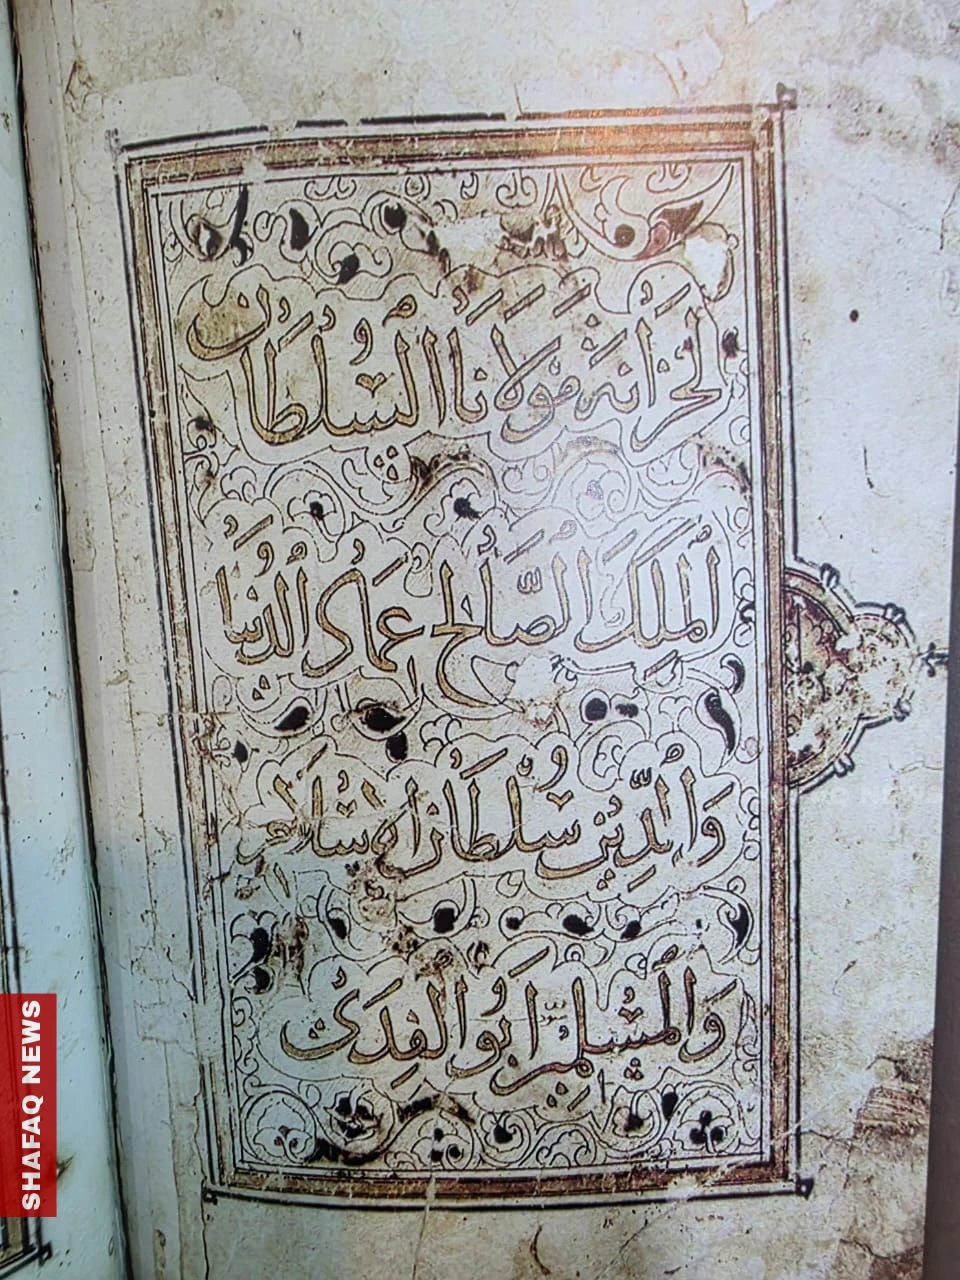 لخزانة مولانا السلطان
الملك الصالح عماد الدنيا
والدين سلطان الإسلام
والمسلمين أبو الفدى
SHAFAQ NEWS